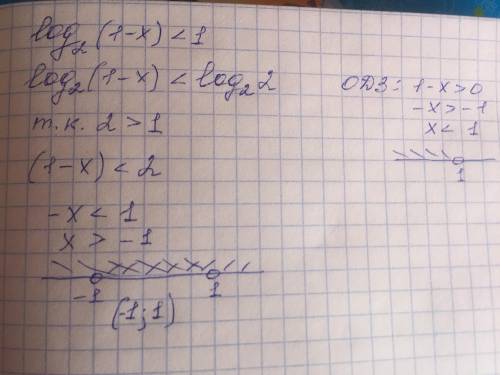 log₂(1-x) < 1
log₂(1-x) < log₂2
т.к. 2 > 1
(1-x) < 2
-x < 1
x > -1
-1 1
(-1; 1)
ОДЗ: 1-x>0
-x>-1
x< 1
1